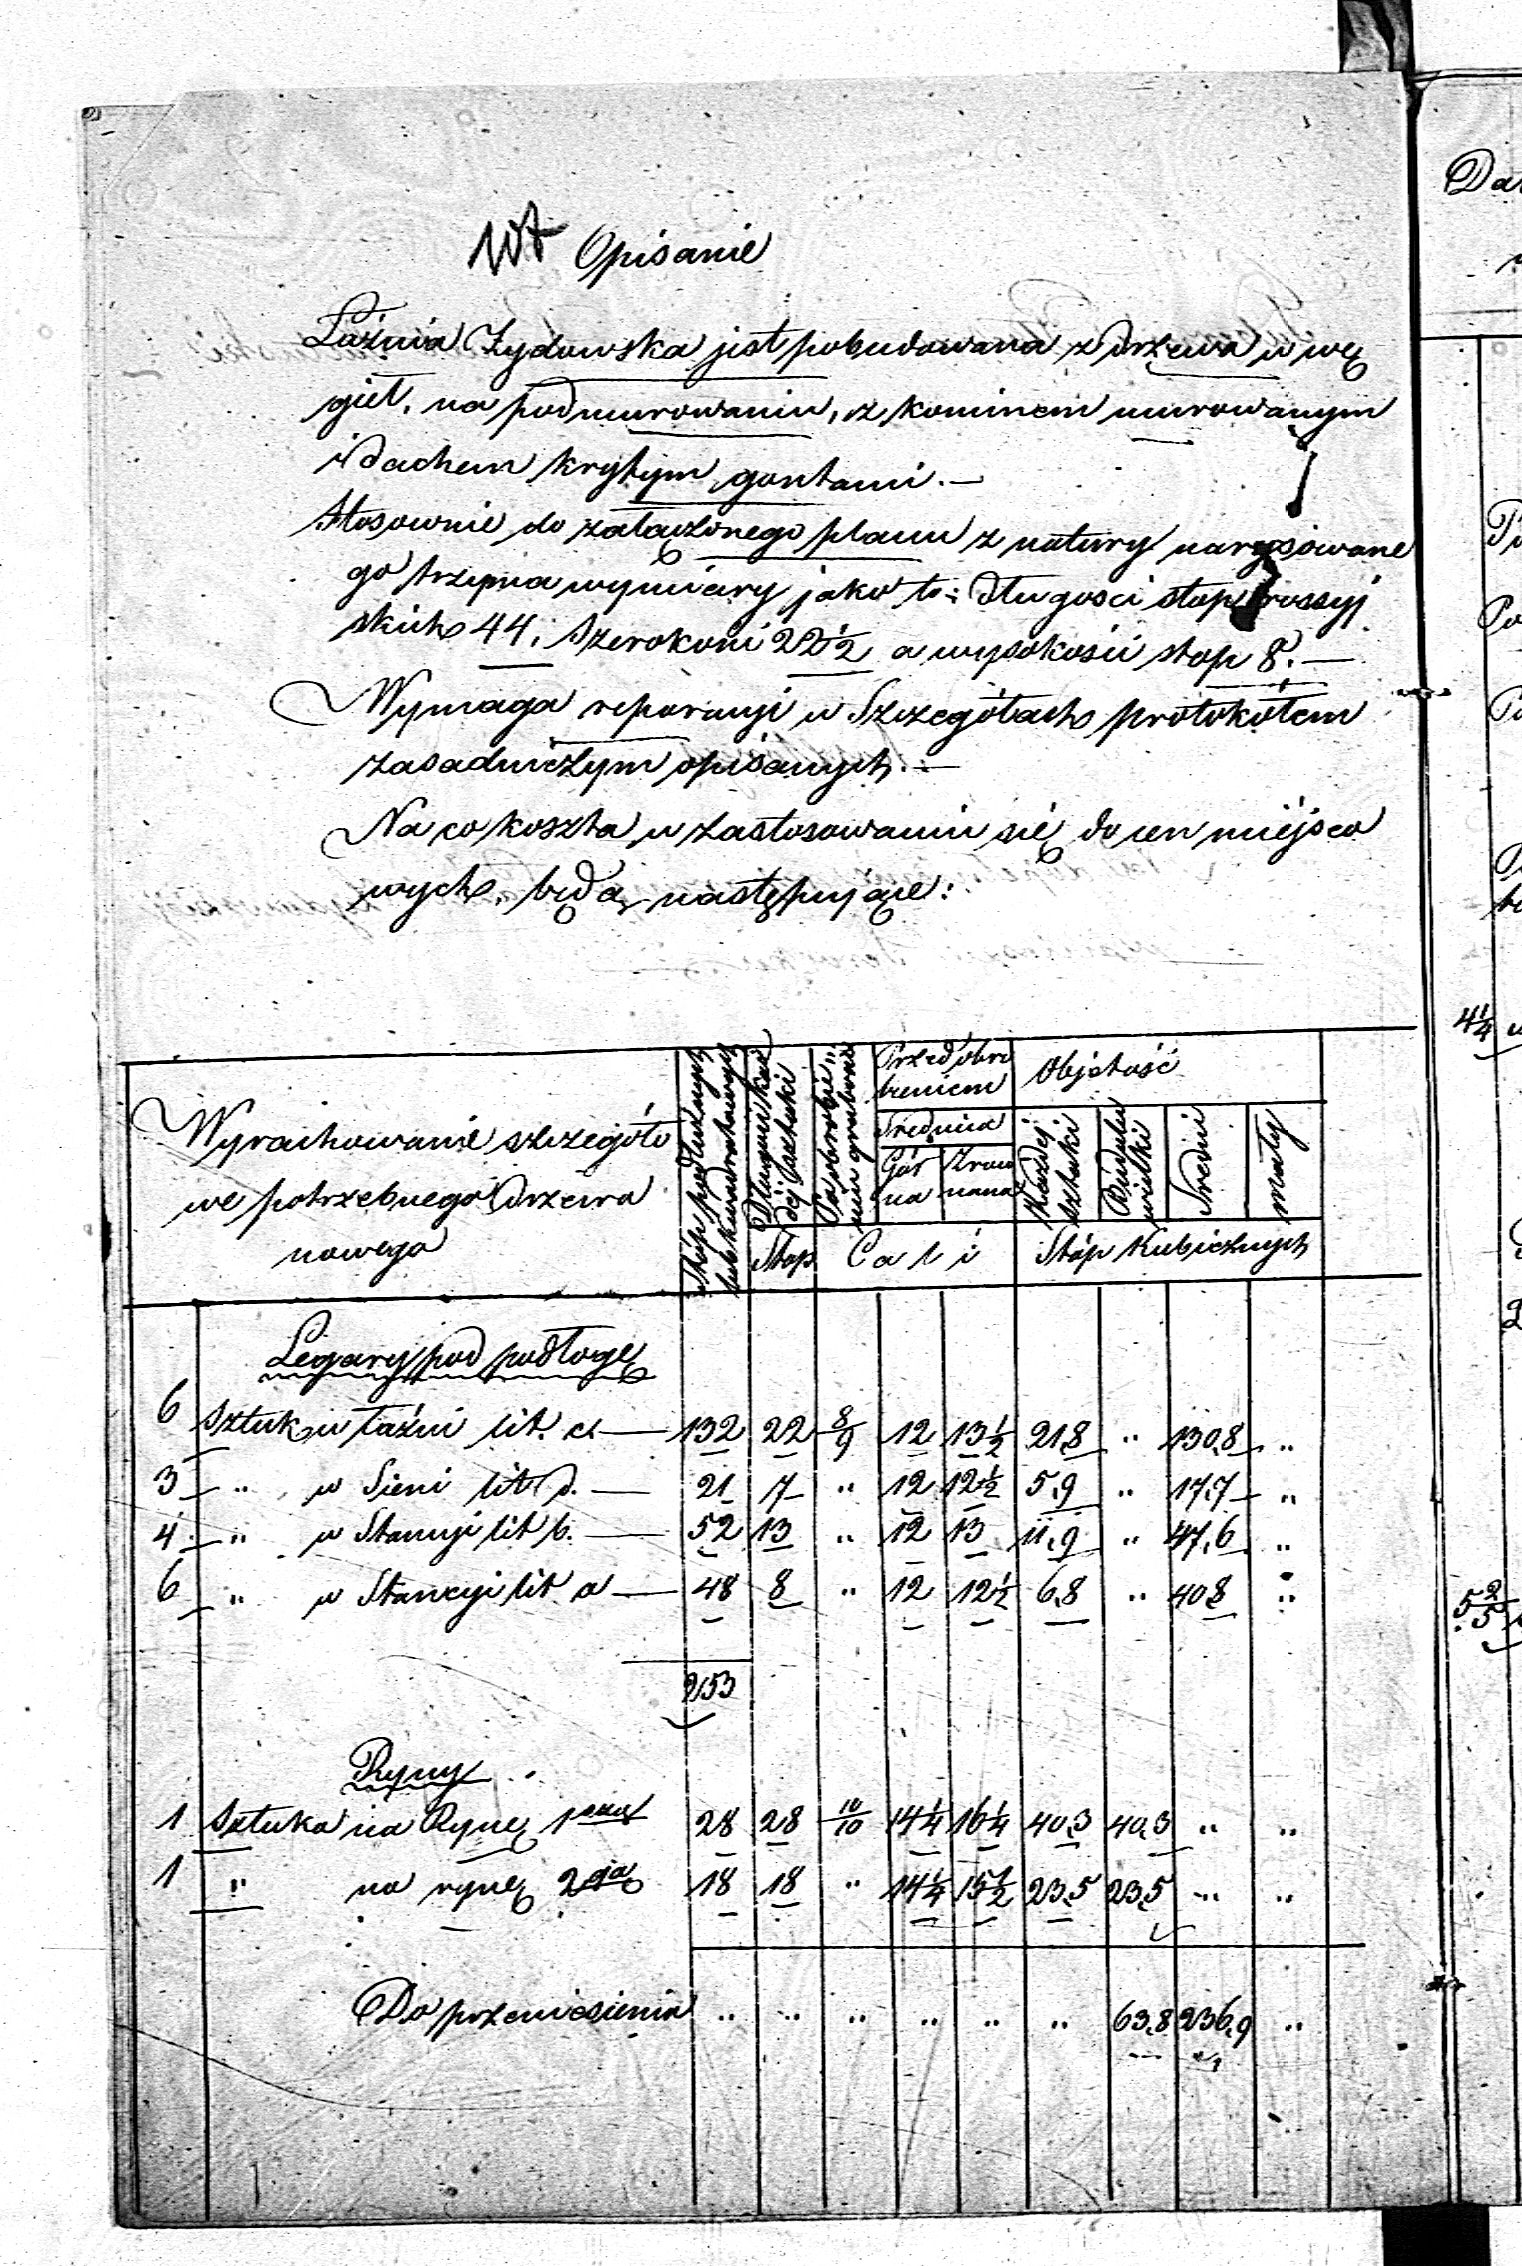 Opisanie
Łaźnia Żydowska jest pobudowana z drzewa w wę
gieł, na podmurowaniu, z kominem murowanym
i dachem krytym gontami. —
Stosownie do załączonego planu z natury narysowane
go trzyma wymiary jako to: długości stóp rossyj
skich 44, szerokości 22 1/2 a wysokości stóp 8. —
Wymaga reparacyi w szczegółach protokółem
zasadniczym opisanych. —
Na co koszta w zastosowaniu się do cen miéjsco
wych, będą następujące:
Wyrachowanie szczegóło
we potrzebnego drzewa
nowego
Stóp podłużnych
lub kwadratowych
Długości każ
déj sztuki
Po obrobie„
niu grubości
Przed obro
bieniem
Średnica
Gór
na
Zrów
nana
Objętość
Każdej
sztuki
Budulu
wielki
Średni
Mały
Stop
Cali
Stóp Kubicznych
Legary pod podłogę
6 Sztuk w łaźni lit. c. — 132 22 8/9 12 13 1/2 21,8 „ 130,8 „
3 „ w Sieni lit d. — 21 7 „ 12 12 1/2 5,9 „ 17,7 „
4 „ w Stancyi lit b. — 52 13 „ 12 13 11,9 „ 47,6 „
6 „ w Stancyi lit a — 48 8 „ 12 12 1/2 6,8 „ 40,8 „
253
Ryny
1 Sztuka na Rynę 1 28 28 10/10 14 1/4 16 1/4 40,3 40,3 „ „
1 „ na rynę 2gą 18 18 „ 14 1/4 15 1/2 23,5 23,5 „ „
Do przeniesienia „ „ „ „ „ „ 63,8 236,9 „
4 1/4
5 2/5